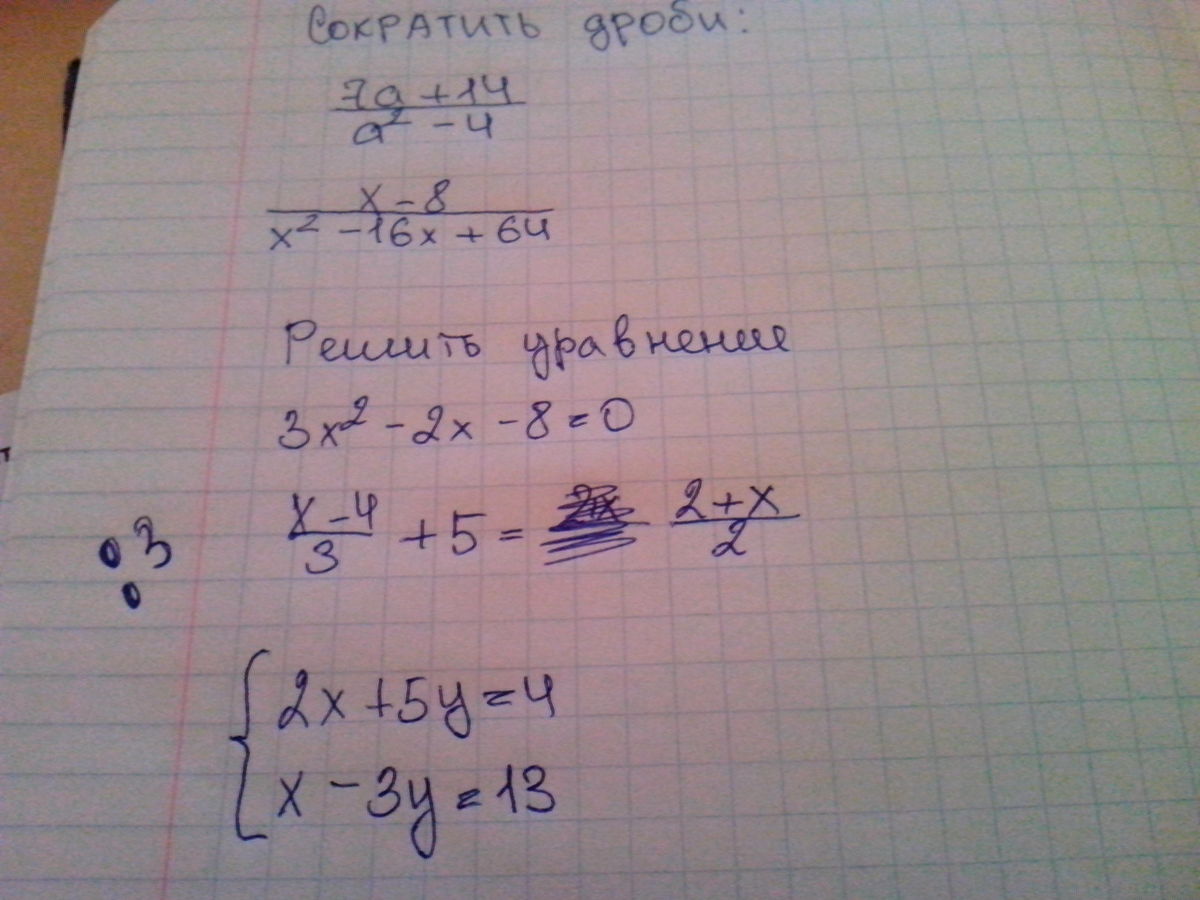 Сократить дроби:
7a + 14
a² - 4
x - 8
x² - 16x + 64
Решить уравнение
3x² - 2x - 8 = 0
3 x - 4 / 3 + 5 = 2 + x / 2
2x + 5y = 4
x - 3y = 13